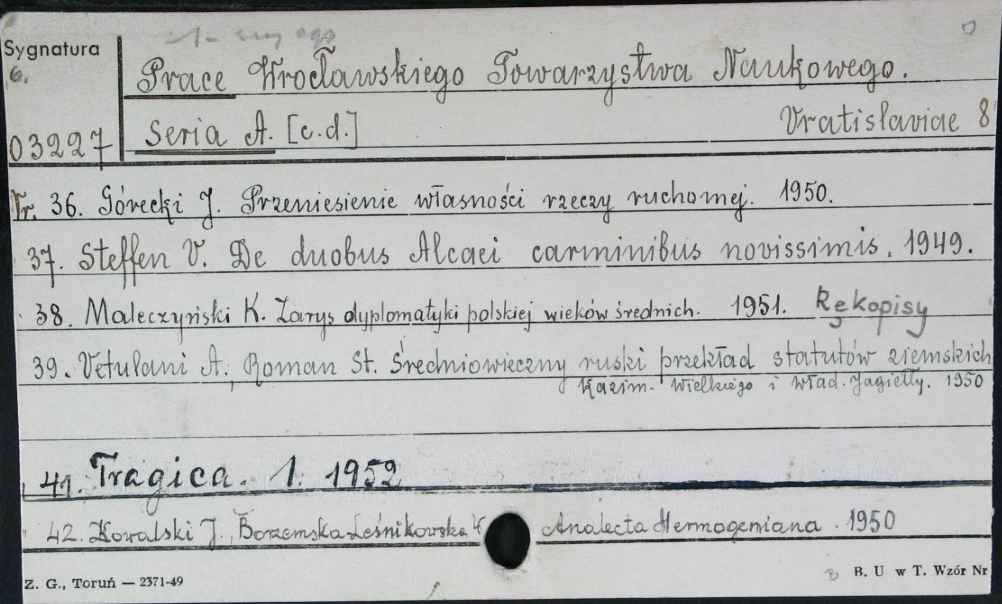 Sygnatura
6.
03227
Prace Wrocławskiego Towarzystwa Naukowego.
Seria A. [c.d.] Vratislaviae 8
Nr. 36. Górecki J. Przeniesienie własności rzeczy ruchomej. 1950.
37. Steffen V. De duobus Alcaei carminibus novissimis. 1949.
38. Maleczyński K. Zarys dyplomatyki polskiej wieków średnich. 1951. Rękopisy
39. Vetulani A., Roman St. Średniowieczny ruski przekład statutów ziemskich
Kazim. Wielkiego i Wład. Jagiełły. 1950
41. Tragica. 1. 1952
42. Kowalski J., Borzemska-Leśnikowska Analecta Hermogeniana. 1950
Z. G., Toruń — 2371-49
B. U w T. Wzór Nr